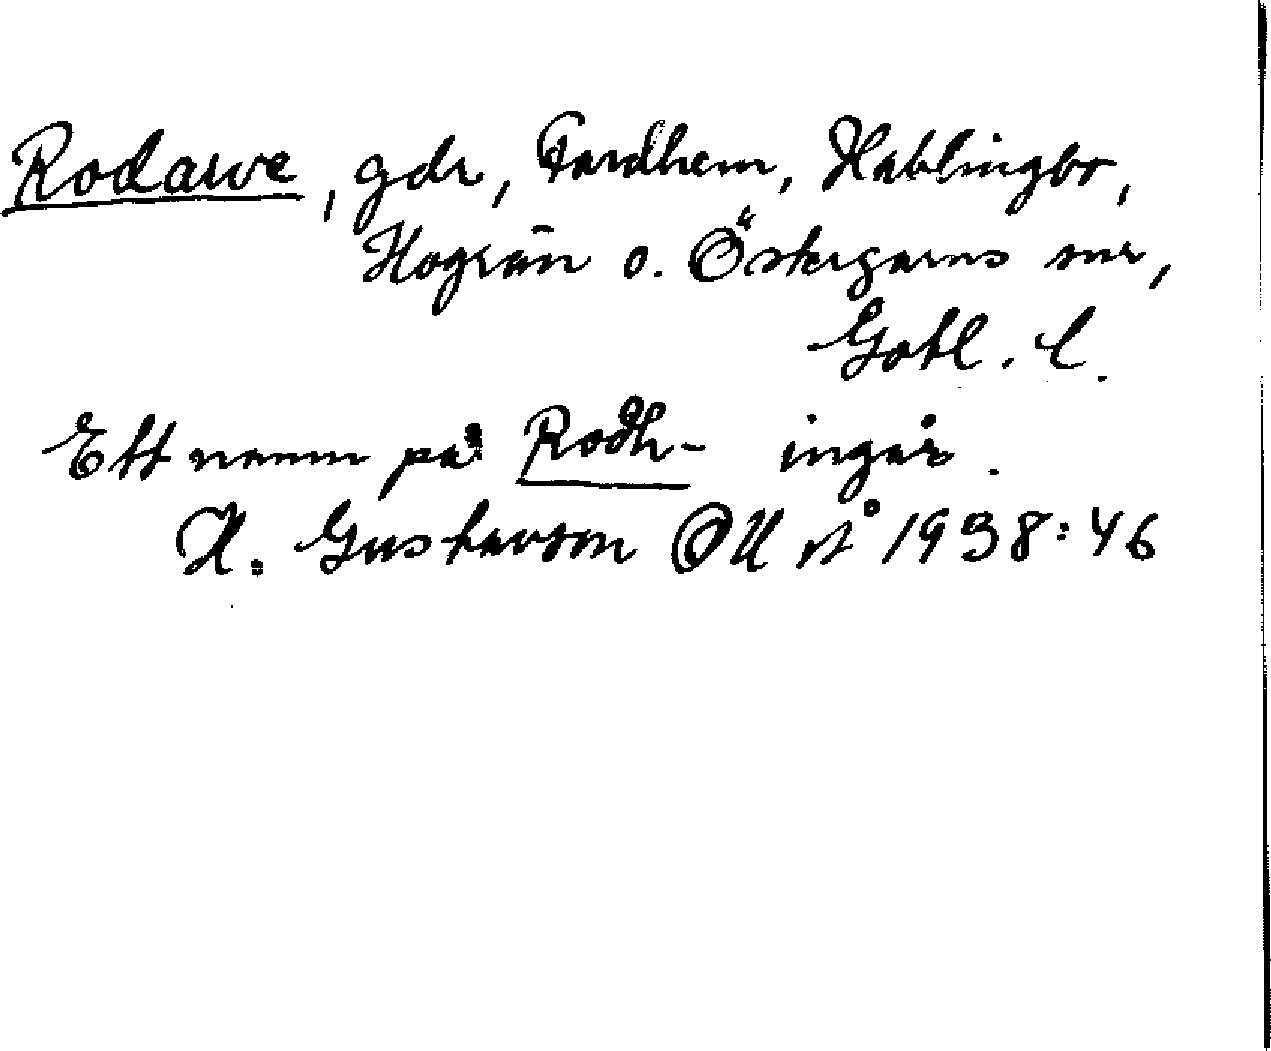 Rodarve, gdr, Fardhem, Hablingbo,
Hogrän o. Östergarns snr,
Gotl. l.
Ett namn på Rodh- ingår.
H. Gustavson OUÅ 1938:46